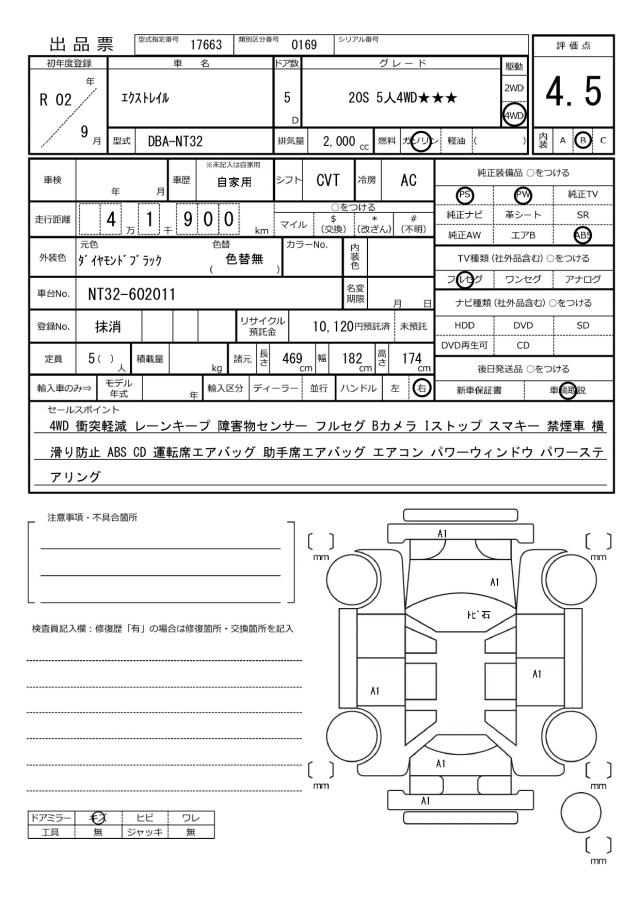 出品票 型式指定番号 17663 類別区分番号 0169 シリアル番号
評価点
4.5
内装 A B C
初年度登録 車名 ドア数 グレード 駆動
R 02 年 9 月 エクストレイル 5 D 20S 5人4WD★★★ 2WD 4WD
型式 DBA-NT32 排気量 2,000 cc 燃料 ガソリン 軽油 ( )
車検 年 月 車歴 ※未記入は自家用 自家用 シフト CVT 冷房 AC
走行距離 4 1 9 0 0 万 千 km ○をつける
マイル $(交換) *(改ざん) #(不明)
外装色 元色 ダイヤモンドブラック 色替 ( 色替無 ) カラーNo. 内装色
車台No. NT32-602011 名変期限 月 日
登録No. 抹消 リサイクル預託金 10,120円預託済 未預託
定員 5( ) 人 積載量 kg 諸元 長さ 469 cm 幅 182 cm 高さ 174 cm
輸入車のみ⇒ モデル年式 年 輸入区分 ディーラー 並行 ハンドル 左 右
純正装備品 ○をつける
PS PW 純正TV
純正ナビ 革シート SR
純正AW エアB ABS
TV種類(社外品含む)○をつける
フルセグ ワンセグ アナログ
ナビ種類(社外品含む)○をつける
HDD DVD SD
DVD再生可 CD
後日発送品 ○をつける
新車保証書 車輌取説
セールスポイント
4WD 衝突軽減 レーンキープ 障害物センサー フルセグ Bカメラ Iストップ スマキー 禁煙車 横
滑り防止 ABS CD 運転席エアバッグ 助手席エアバッグ エアコン パワーウィンドウ パワーステ
アリング
注意事項・不具合箇所
検査員記入欄：修復歴「有」の場合は修復箇所・交換箇所を記入
ドアミラー キズ ヒビ ワレ
工具 無 ジャッキ 無
A1
[ ] mm
[ ] mm
A1
トビ石
A1
A1
A1
[ ] mm
[ ] mm
A1
[ ] mm